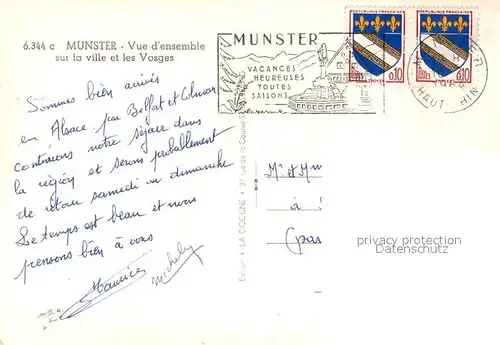 6.344 c MUNSTER - Vue d'ensemble
sur la ville et les Vosges
MUNSTER
VACANCES
HEUREUSES
TOUTES
SAISONS
REPUBLIQUE FRANÇAISE
0,10
REPUBLIQUE FRANÇAISE
0,10
HAUT-RHIN
Sommes bien arrivés
en Alsace par Belfort et Colmar
continuons notre séjour dans
la région et serons probablement
de retour samedi ou dimanche
Le temps est beau et nous
pensons bien à vous
Maurice
LA CIGOGNE
Mr et M
à
(par
privacy protection
Datenschutz